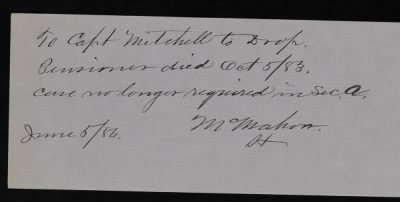 To Capt Mitchell to Drop.
Pensioner died Oct 5/83.
case no longer required in Sec. A.
June 5/86. McMahon.